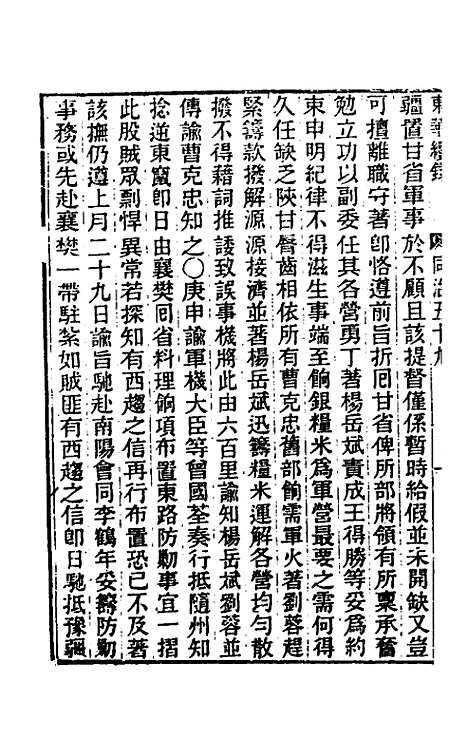 東華續錄 同治五十九
疆置甘省軍事於不顧且該提督僅係暫時給假並未開缺又豈
可擅離職守著卽恪遵前旨折回甘省俾所部將領有所稟承奮
勉立功以副委任其各營勇丁著楊岳斌責成王得勝等妥爲約
束申明紀律不得滋生事端至餉銀糧米爲軍營最要之需何得
久任缺乏陝甘脣齒相依所有曹克忠舊部餉需軍火著劉蓉趕
緊籌款撥解源源接濟並著楊岳斌迅籌糧米運解各營均勻散
撥不得藉詞推諉致誤事機將此由六百里諭知楊岳斌劉蓉並
傳諭曹克忠知之〇庚申諭軍機大臣等曾國荃奏行抵隨州知
捻逆東竄卽日由襄樊囘省料理餉項布置東路防勦事宜一摺
此股賊眾剽悍異常若探知有西趨之信再行布置恐已不及著
該撫仍遵上月二十九日諭旨馳赴南陽會同李鶴年妥籌防勦
事務或先赴襄樊一帶駐紮如賊匪有西趨之信卽日馳抵豫疆